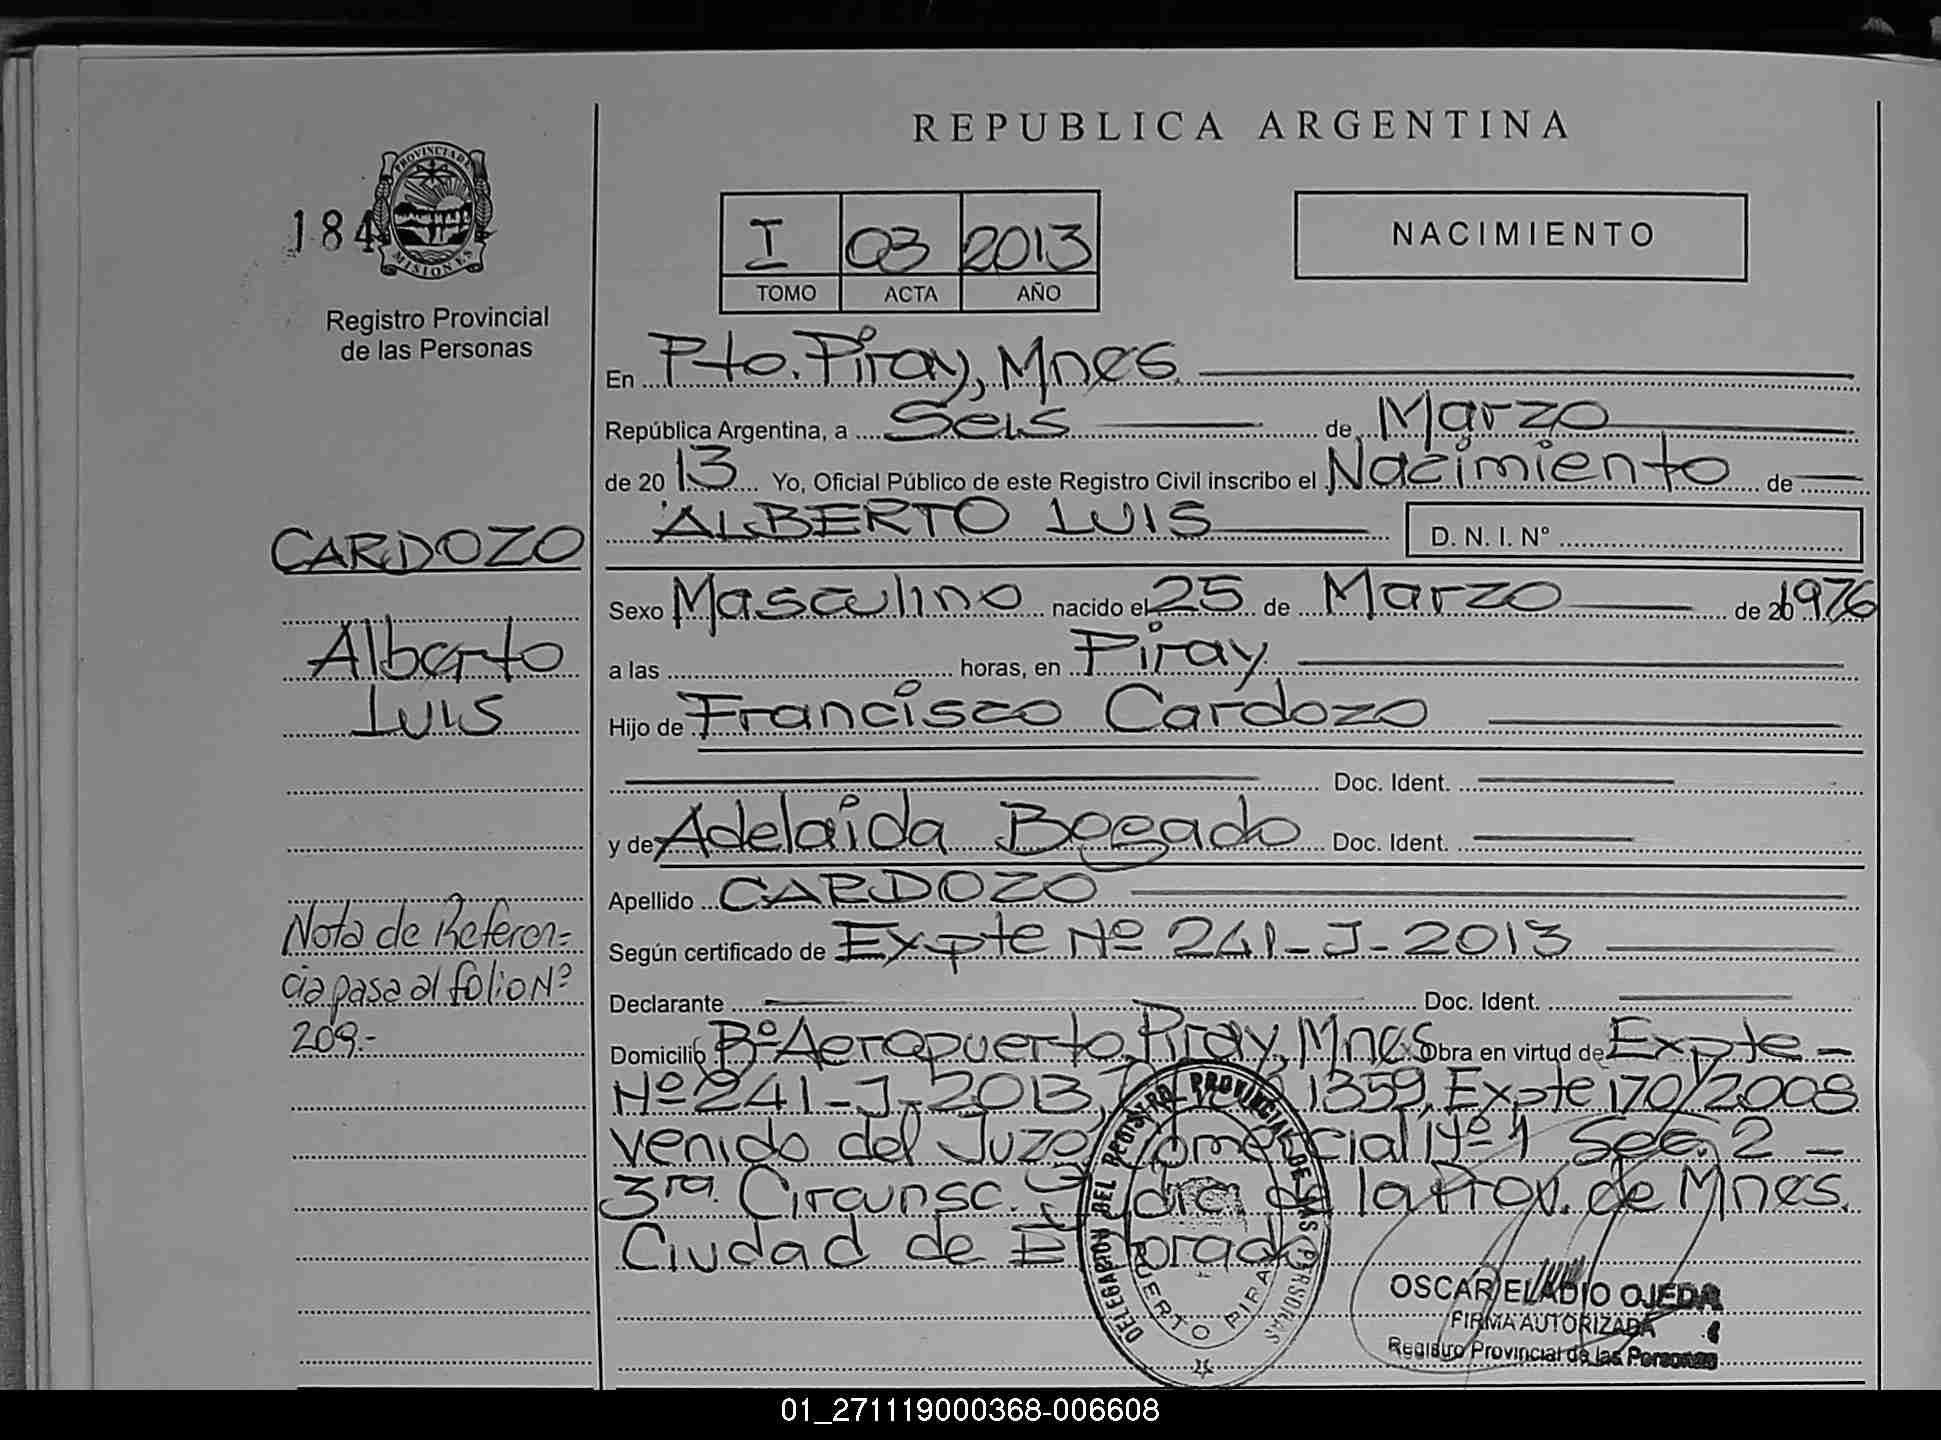 REPUBLICA ARGENTINA
184
PROVINCIA DE MISIONES
Registro Provincial
de las Personas
I 03 2013
TOMO ACTA AÑO
NACIMIENTO
En Pto. Piray, Mnes.
República Argentina, a Seis de Marzo
de 2013 Yo, Oficial Público de este Registro Civil inscribo el Nacimiento de
ALBERTO LUIS D. N. I. Nº
CARDOZO
Alberto
Luis
Sexo Masculino nacido el 25 de Marzo de 20 1976
a las horas, en Piray
Hijo de Francisco Cardozo
Doc. Ident.
y de Adelaida Bogado Doc. Ident.
Apellido CARDOZO
Según certificado de Expte Nº 241-J-2013
Declarante Doc. Ident.
Nota de Referen=
cia pasa al folio Nº
209.-
Domicilio Bº Aeropuerto, Piray, Mnes Obra en virtud de Expte -
Nº 241-J-2013, 1359, Expte 170/2008
venido del Juzg. Comercial Nº 1 Sec. 2 -
3ra. Circunsc. Judic. de la Prov. de Mnes.
Ciudad de Eldorado
DELEGACION DEL REGISTRO PROVINCIAL DE LAS PERSONAS
PUERTO PIRAY
OSCAR ELADIO OJEDA
FIRMA AUTORIZADA
Registro Provincial de las Personas
01_271119000368-006608